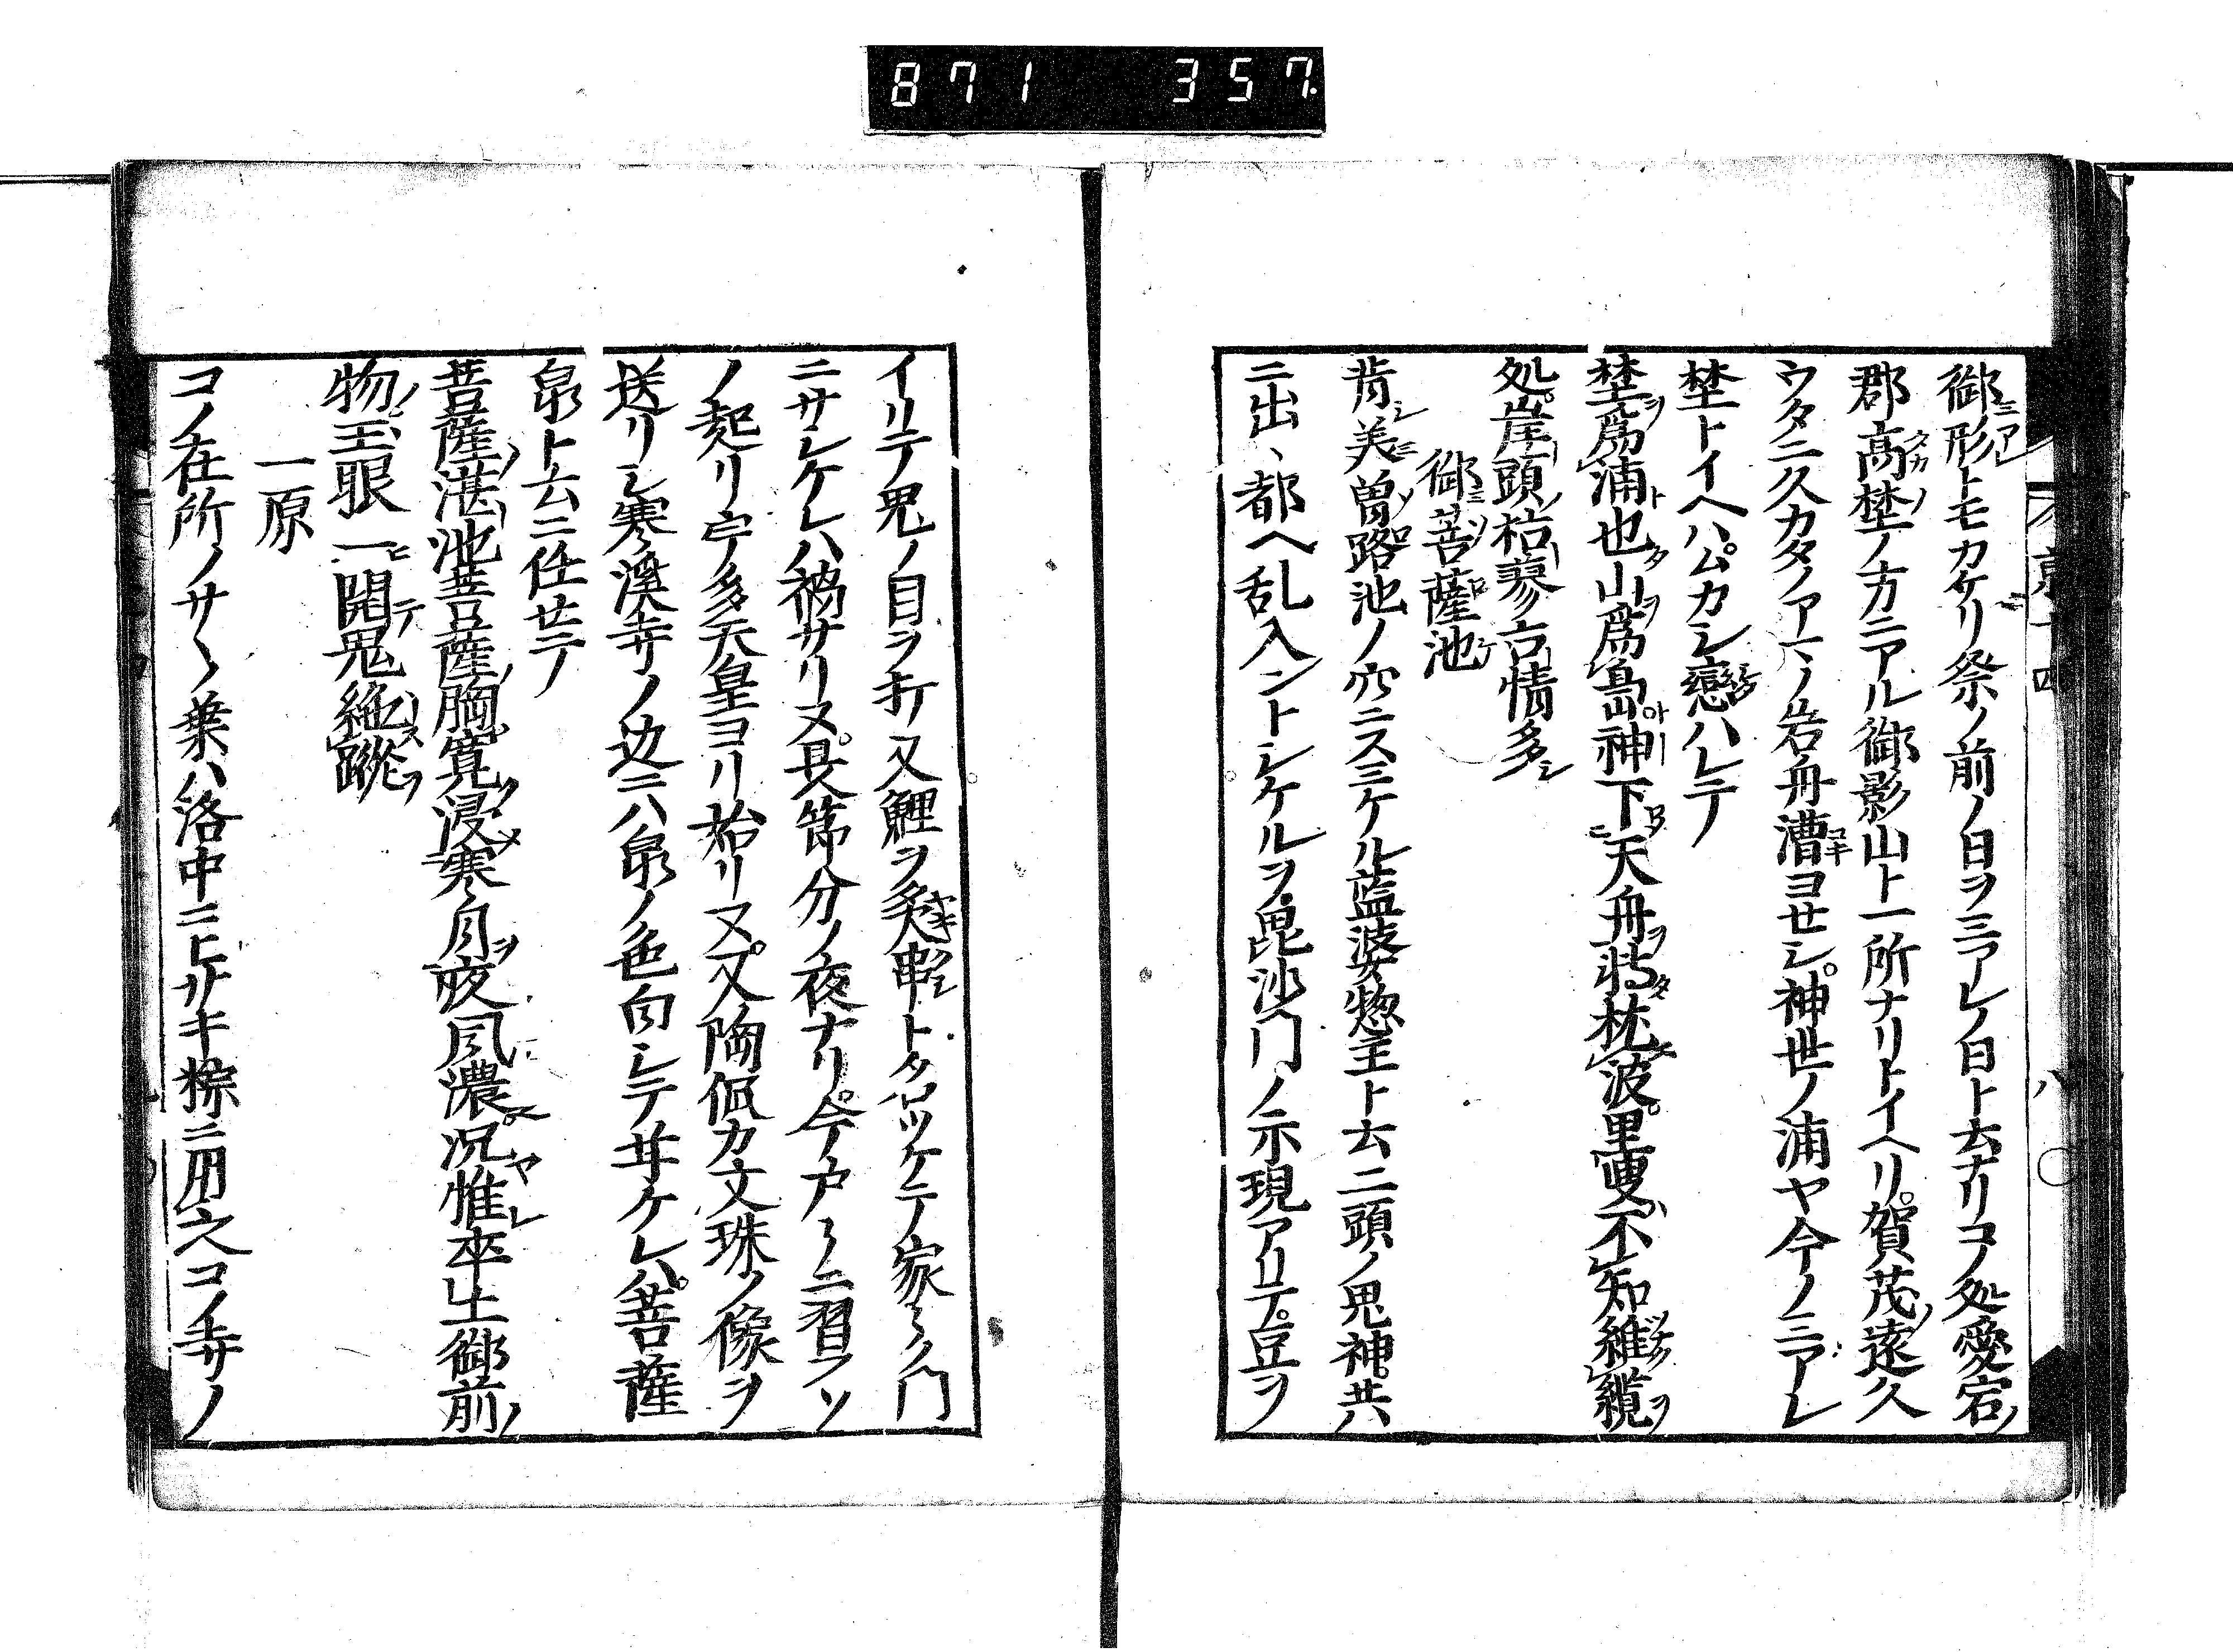 871 357
御形トモカケリ祭ノ前ノ日ヲミアレノ日ト云ナリコノ処愛宕ノ
郡高埜ノ方ニアル御影山ト一所ナリトイヘリ賀茂ノ遠久
ウタニ久カタノアマノ岩舟漕ヨセシ神世ノ浦ヤ今ノミアレ
埜トイヘハムカシ戀ハレテ
埜爲浦也山爲島神下天舟将枕波里更不知維纜
処崖頭枯蓼古情多
御菩薩池
昔美曽路池ノ穴ニスミケル藍婆惣主ト云二頭ノ鬼神共
ニ出都ヘ乱入ントシケルヲ毘沙門ノ示現アリテ豆ヲ
イリテ鬼ノ目ヲ打又鯉ヲ串トタ名ツケテ家ミノ門
ニサシケレハ禍サリヌ其節分ノ夜ナリ今ノ戸ミニ習フソ
ノ起リ宇多天皇ヨリ始リヌ又陶仮カ文珠ノ像ヲ
送リシ寒溪寺ノ辺ニハ泉ノ色白シテ甘ケレハ菩薩
泉ト云ニ任セテ
菩薩湛池菩薩胸寛浸寒月夜風濃況惟卒土御前
物王眼一開鬼絶蹤
一原
コノ在所ノサヽノ葉ハ洛中ニヒサキ粽ニ用之コノ寺ノ